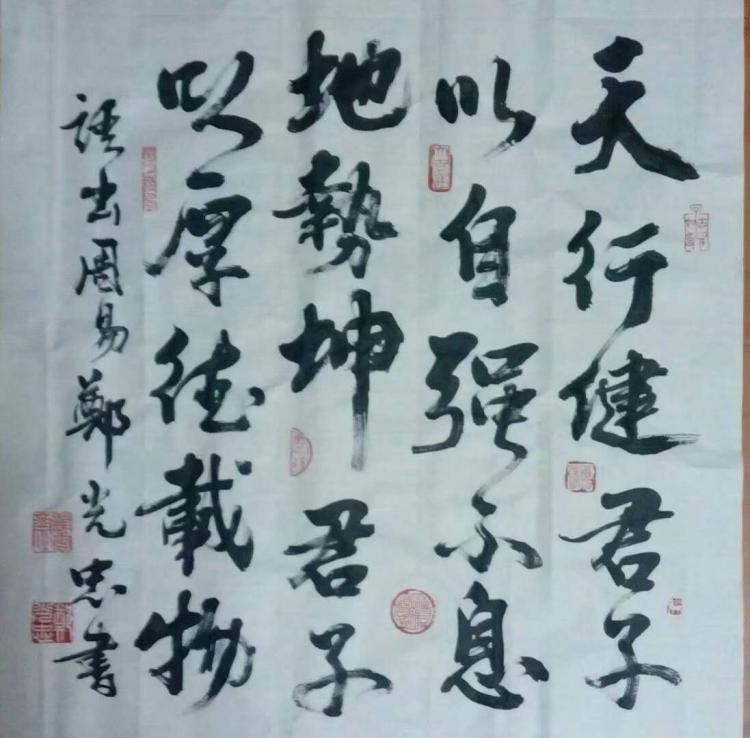 天行健君子
以自强不息
地勢坤君子
以厚德載物
語出周易鄭光忠书